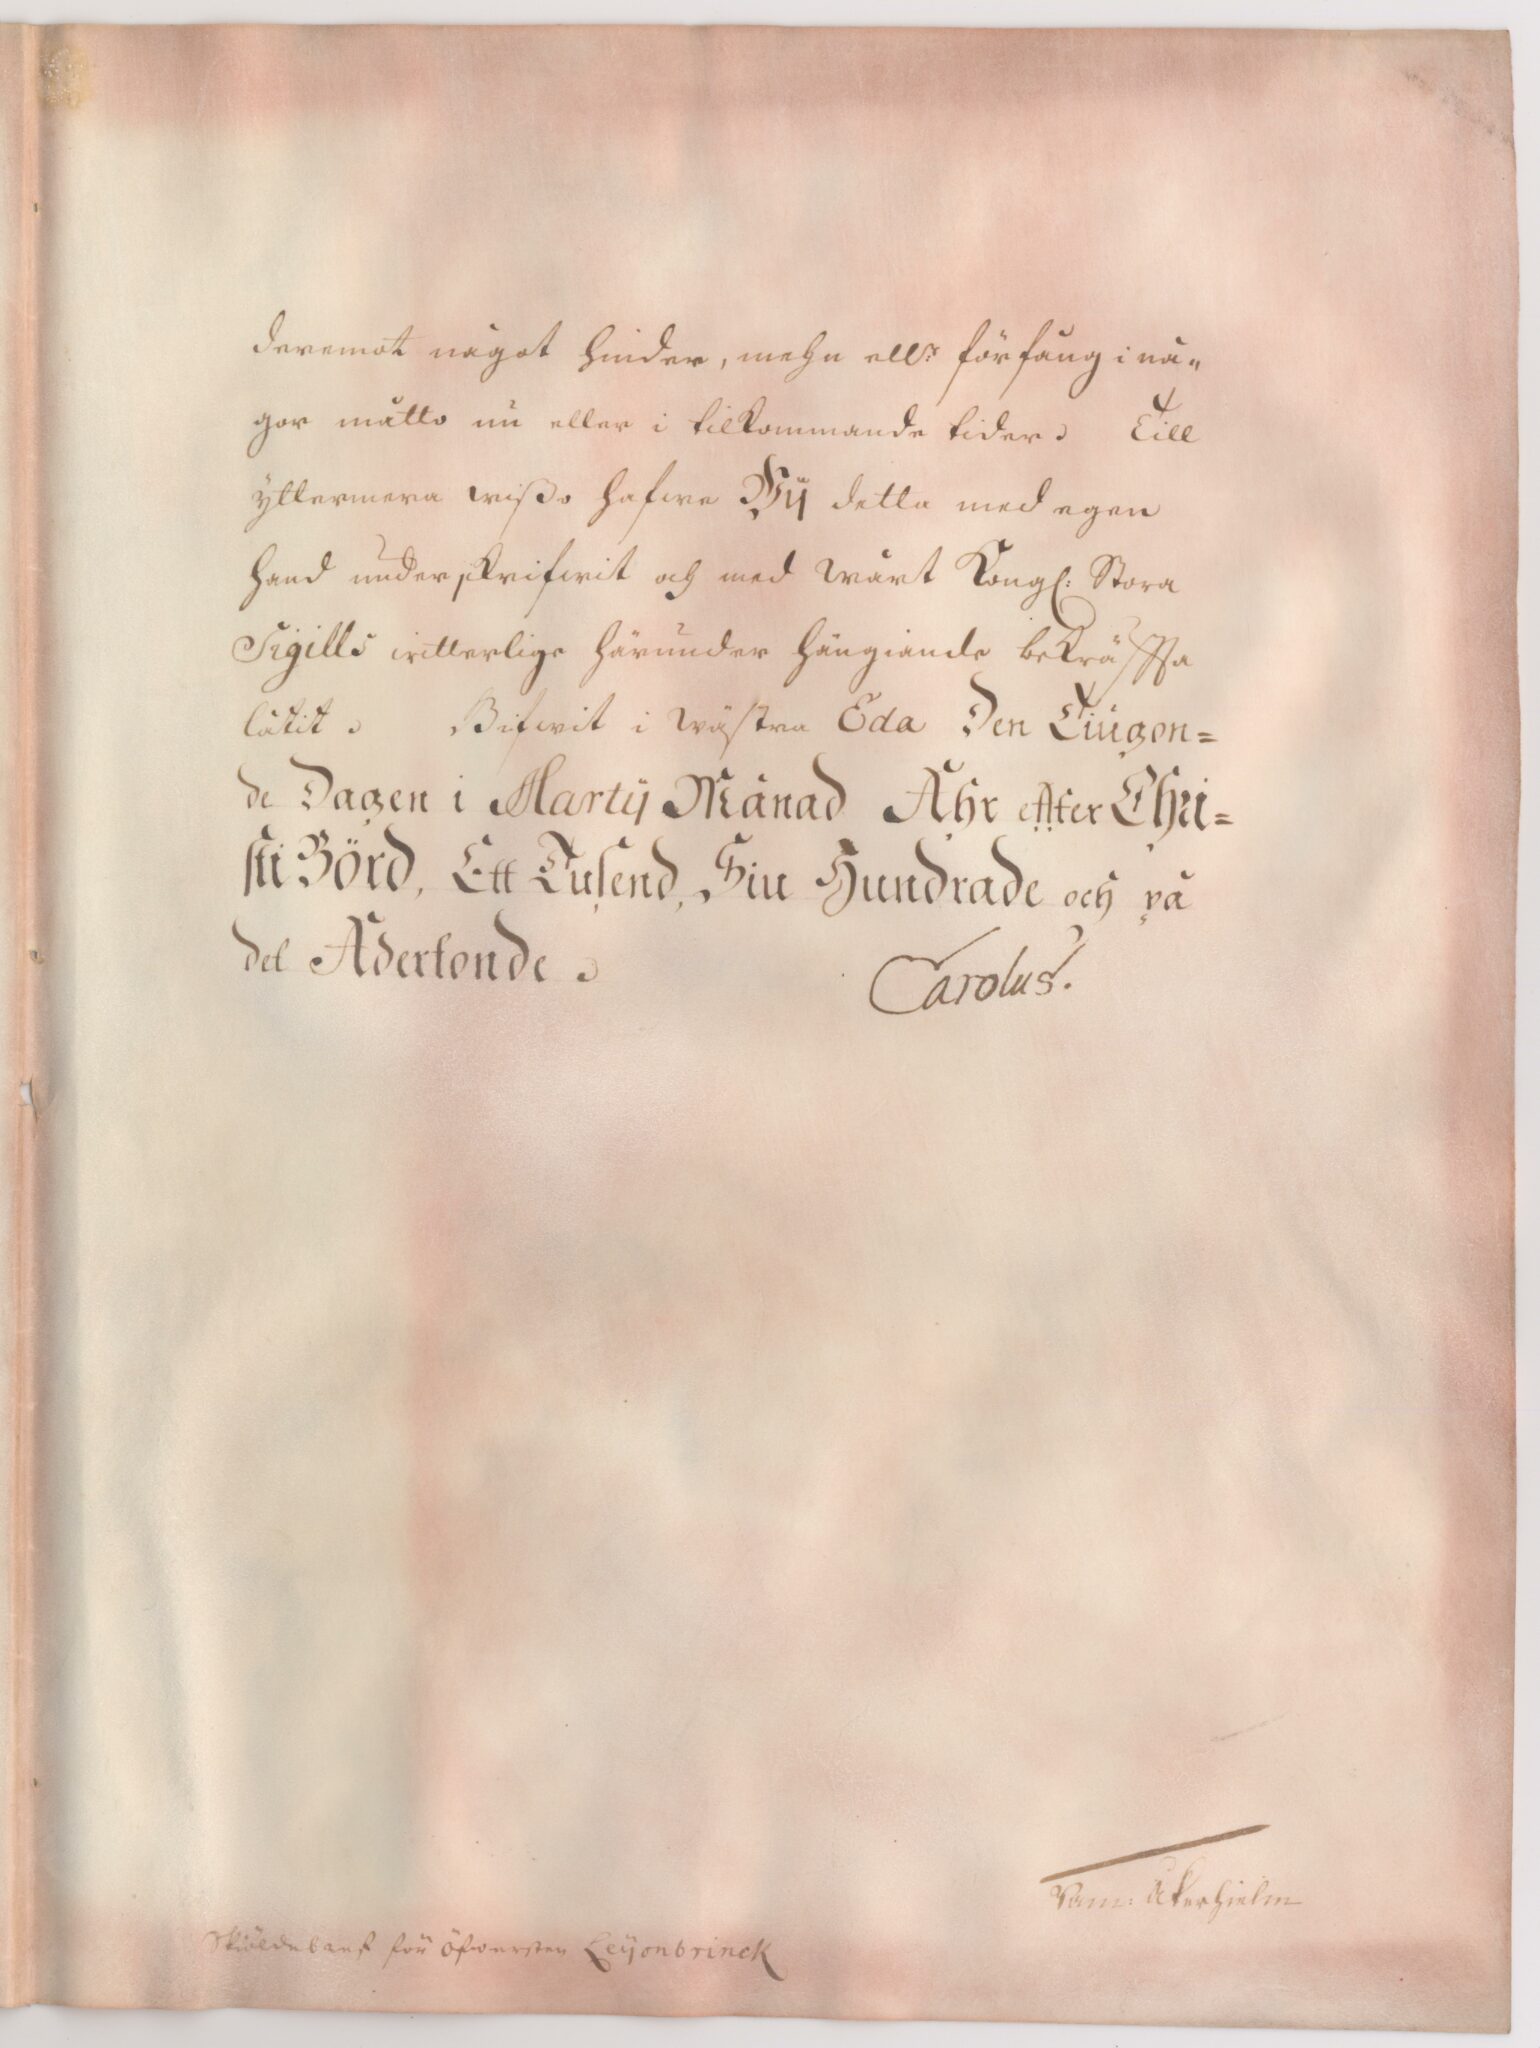 deremot något hinder, mehn ell:r förfång i nå-
gor måtto nu eller i tilkommande tider. Till
yttermera wißo hafwe Wÿ detta med egen
hand underskrifwit och med wårt Kongl: Stora
Sigills witterlige härunder hängiande bekräffta
låtit. Gifwit i wästra Eda Den Tiugon=
de Dagen i Martÿ Månad Åhr effter Chri=
sti Börd, Ett Tusend, Siu Hundrade och på
det Adertonde.
Carolus.
Sam: Åkerhielm
Skiöldebref för öfwersten Leÿonbrinck